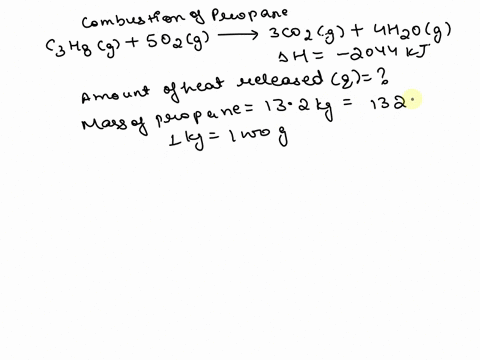 Combustion of Propane
C3H8(g) + 5O2(g) ⟶ 3CO2(g) + 4H2O(g)
ΔH = -2044 kJ
Amount of heat released (q) = ?
Mass of propane = 13.2 kg = 132
1 kg = 1000 g